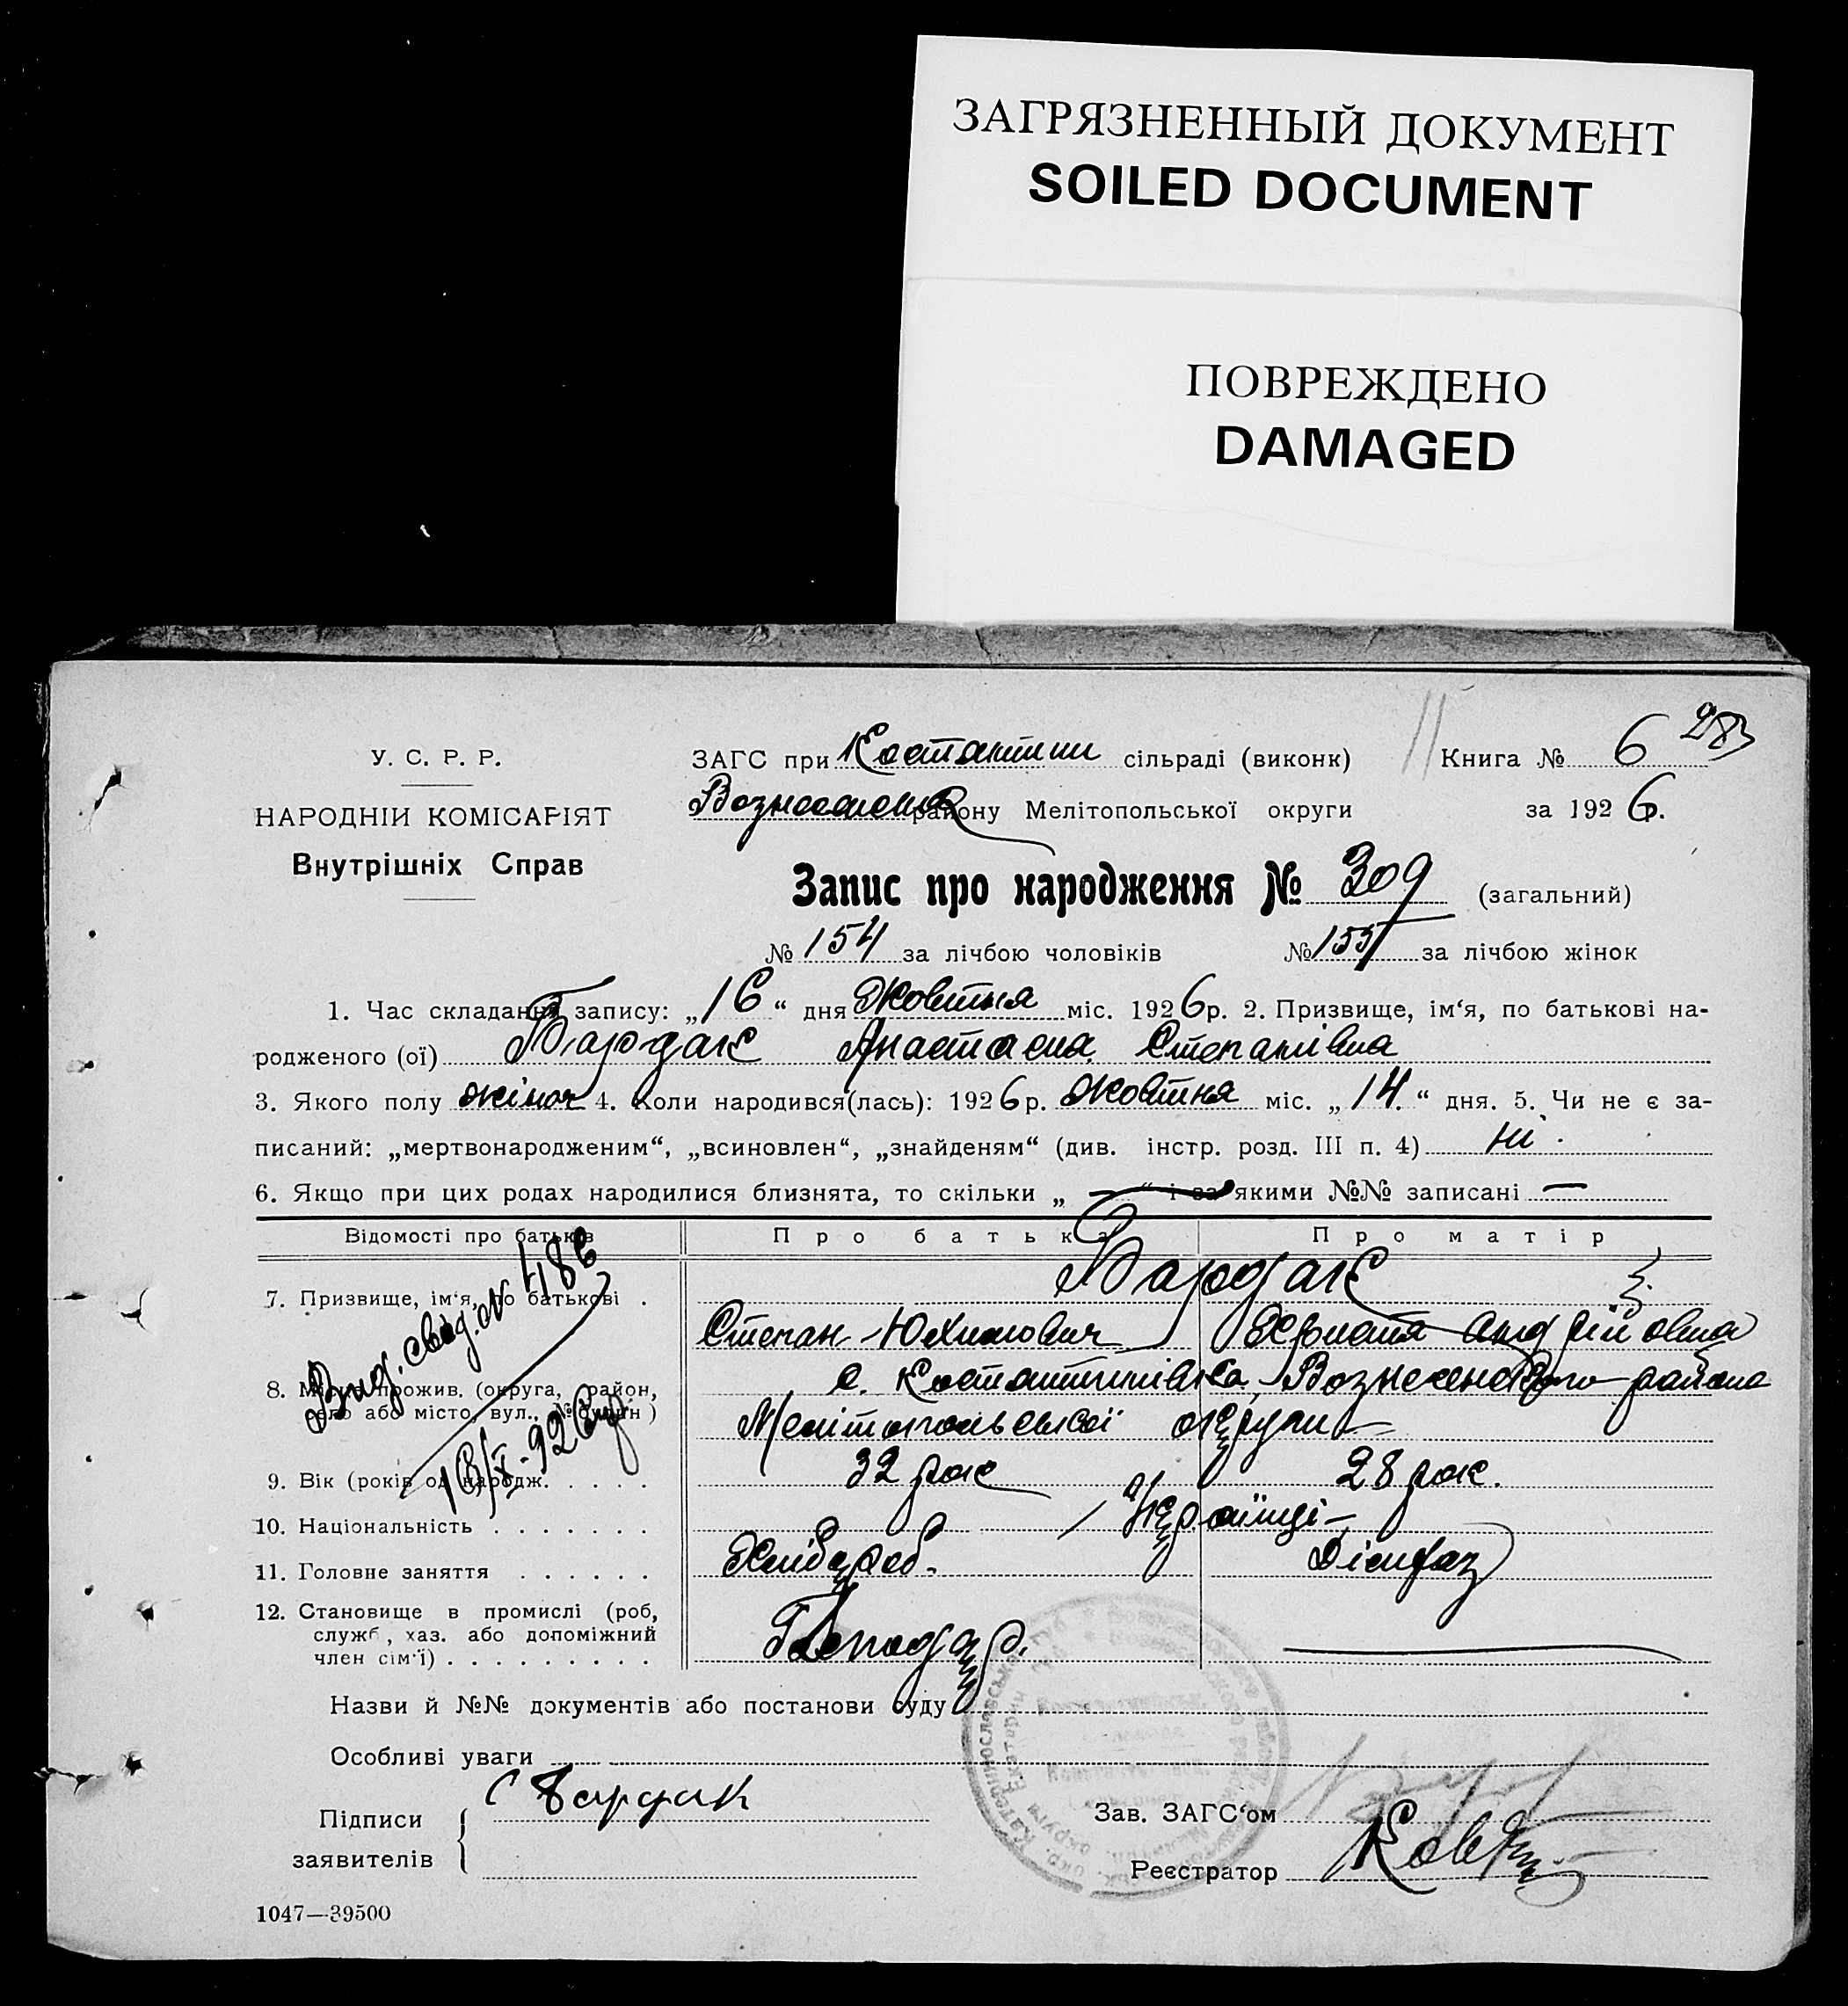 ЗАГРЯЗНЕННЫЙ ДОКУМЕНТ
SOILED DOCUMENT
ПОВРЕЖДЕНО
DAMAGED
283
У. С. Р. Р.
ЗАГС при Костантин сільраді (виконк) Книга № 6
НАРОДНІЙ КОМІСАРІЯТ
Вознесенск району Мелітопольської округи за 1926.
Внутрішніх Справ
Запис про народження № 309 (загальний)
№ 154 за лічбою чоловіків № 155 за лічбою жінок
1. Час складання запису: „16“ дня Жовтня міс. 1926 р. 2. Призвище, ім‘я, по батькові на-
родженого (ої) Бардак Анастасия Степанівна
3. Якого полу жіноч 4. Коли народився(лась): 1926 р. Жовтня міс. „14.“ дня. 5. Чи не є за-
писаний: „мертвонародженим“, „всиновлен“, „знайденям“ (див. інстр. розд. III п. 4) Ні.
6. Якщо при цих родах народилися близнята, то скільки „—“ і за якими №№ записані —
Відомості про батьків Про батька Про матір
7. Призвище, ім‘я, по батькові . Бардак
Степан Юхимович Андрійовна
8. Місце прожив. (округа, район, с. Костантинівка, Вознесенского района
село або місто, вул., № будин) Мелітопольської округи
Вид. свід. № 486
18/X-926 р.
9. Вік (років од народж. . . . . . 32 рок 28 рок.
10. Національність . . . . . . . Українці
11. Головне заняття . . . . . . Хлібороб.
12. Становище в промислі (роб, Господар.
служб, хаз. або допоміжний
член сім‘ї) . . . . . . . . .
Назви й №№ документів або постанови суду
Особливі уваги
Підписи С Бардак Зав. ЗАГС‘ом
заявителів Реєстратор
1047—39500